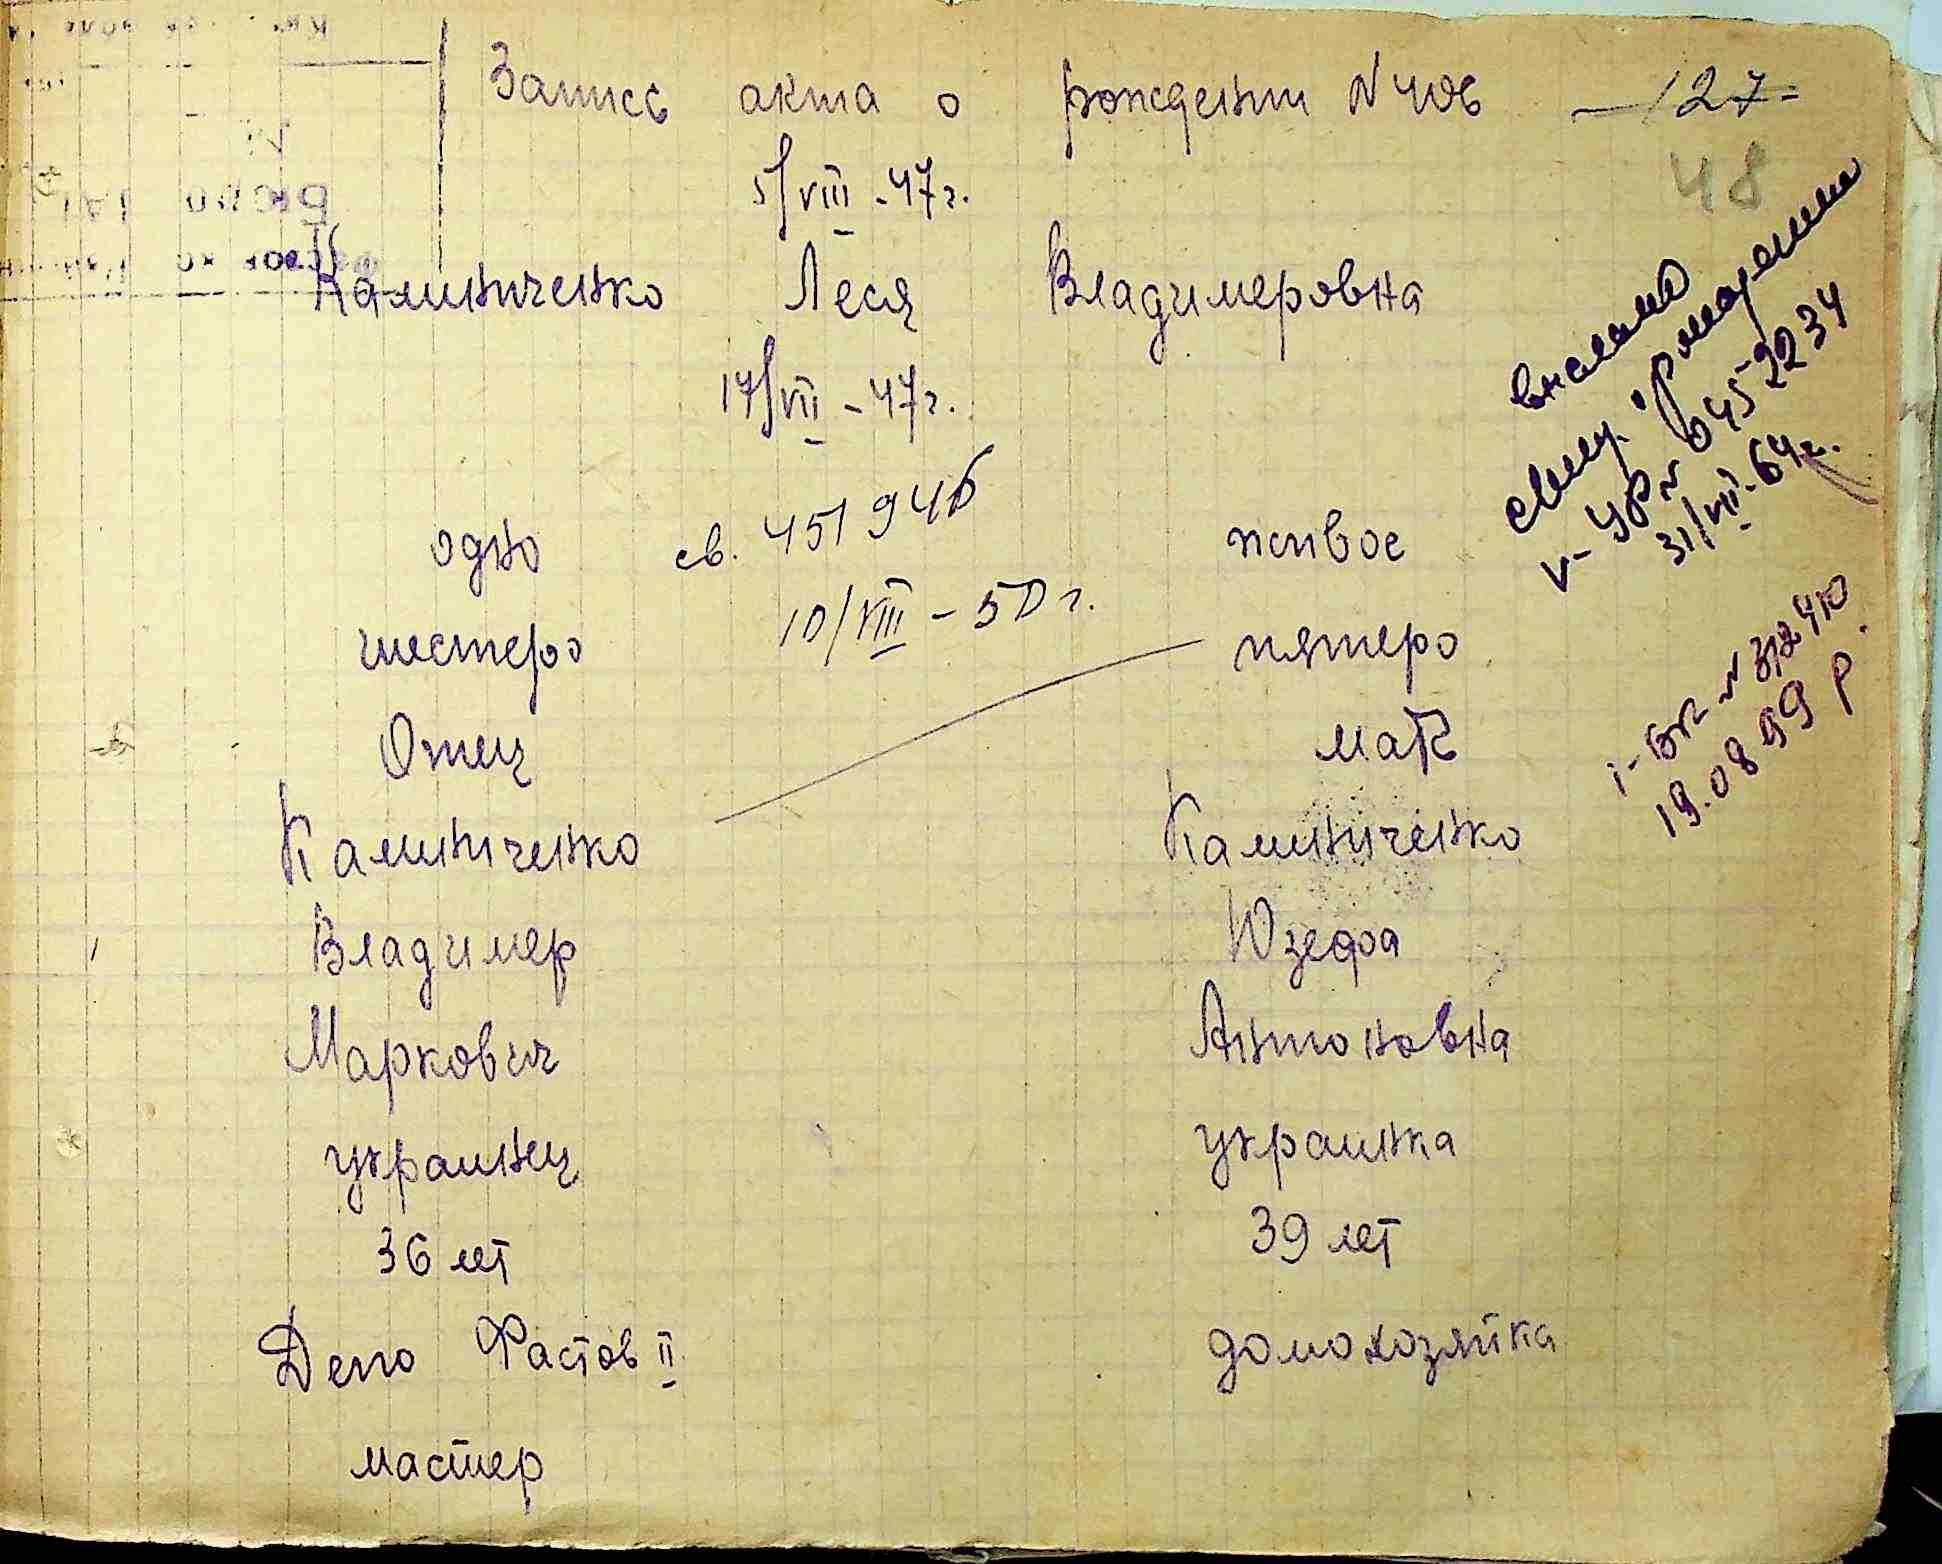 Запись акта о рождении N 406 -127-
48
5/VIII-47г.
Калиниченко Леся Владимеровна
17/VII-47г.
одно св. 451946 живое
10/VIII-50г.
шестеро пятеро
Отец мать
Калиниченко Калиниченко
Владимер Юзефа
Маркович Антоновна
украинец украинка
36 лет 39 лет
Депо Фастов II домохозяйка
мастер
выслано
свид. о рождении
V-УР N 0452234
31/VII-64г.
I-БК N 312410
19.08.99 р.